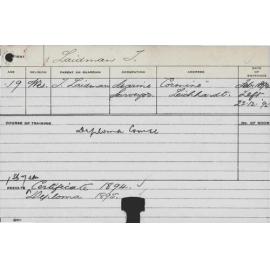 Laidman T.
AGE RELIGION PARENT OR GUARDIAN OCCUPATION ADDRESS DATE OF ENTRANCE
19 Wes. T. Laidman Marine Surveyor "Cornine" Leichhardt. Feb. 1894 Left 23.12.95
COURSE OF TRAINING NO. OF ROOM
Diploma Course
1st Year
RESULTS Certificate 1894.
Diploma 1895.